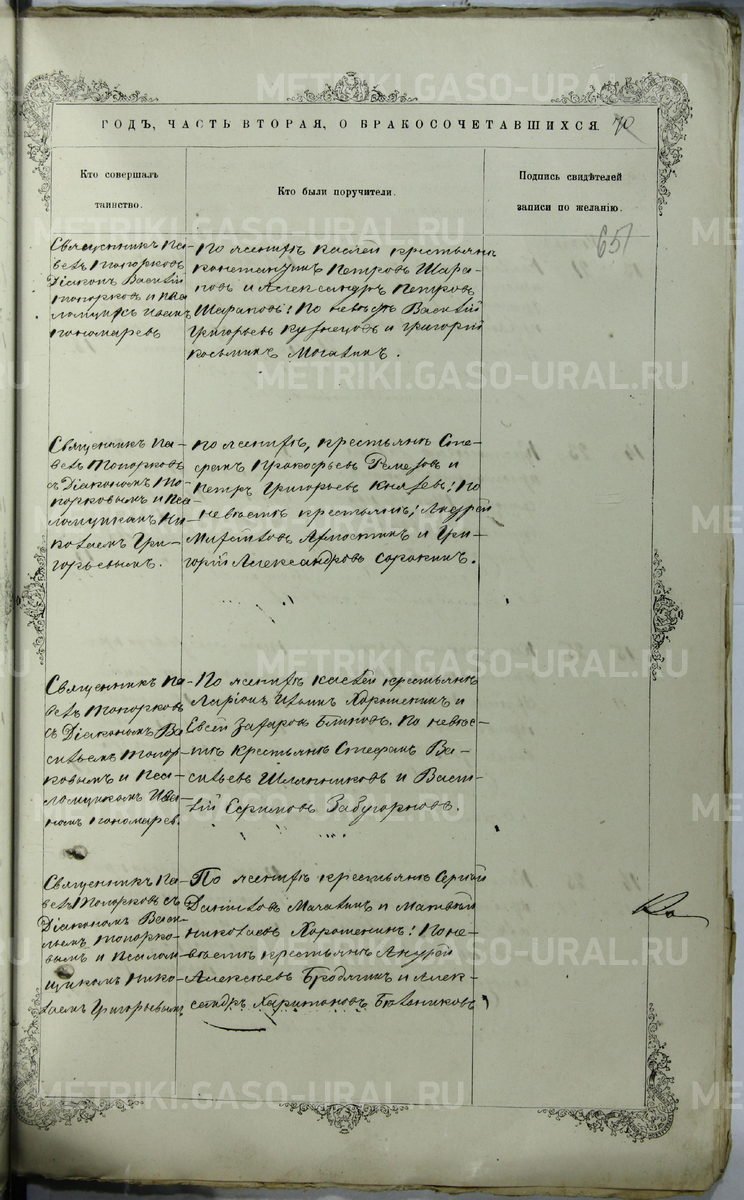 METRIKI.GASO-URAL.RU
ГОДЪ, ЧАСТЬ ВТОРАЯ, О БРАКОСОЧЕТАВШИХСЯ.
70
Кто совершалъ
таинство.
Кто были поручители.
Подпись свидѣтелей
записи по желанію.
651
Священникъ Па-
велъ Топорковъ
Діаконъ Василій
Топорковъ и Пса-
ломщикъ Иванъ
Пономаревъ
По женихѣ крестьянѣ
Константинъ Петровъ Шара-
повъ и Александръ Петровъ
Шараповъ: По невѣстѣ Василій
Григорьевъ Кузнецовъ и Григорій
Косьминъ
Священникъ Па-
велъ Топорковъ
съ Діакономъ То-
порковымъ и Пса-
ломщикомъ Ни-
колаемъ Гри-
горьевымъ.
По женихѣ, крестьянѣ Сте-
фанъ Прокофьевъ Ремезовъ и
Петръ Григорьевъ Князевъ: По
невѣстѣ крестьянѣ: Андрей
и Гри-
горій Александровъ Сорокинъ.
Священникъ Па-
велъ Топорковъ
съ Діакономъ Ва-
сильемъ Топор-
ковымъ и Пса-
ломщикомъ Ива-
номъ Пономарев.
По женихѣ крестьянѣ
Ларіонъ Хорошенинъ и
Евсей Захаровъ Блиновъ. По невѣс-
тѣ крестьянѣ Стефанъ Ва-
сильевъ Шляпниковъ и Васи-
лій Ефимовъ Забугорновъ.
Священникъ Па-
велъ Топорковъ съ
Діакономъ Васи-
льемъ Топорко-
вымъ и Псалом-
щикомъ Нико-
лаемъ Григорьевымъ
По женихѣ крестьянѣ Сергей
Даниловъ и Матвей
Николаевъ Хорошенинъ: По не-
вѣстѣ крестьянѣ Андрей
Алексѣевъ Бродягинъ и Алек-
сандръ Харитоновъ